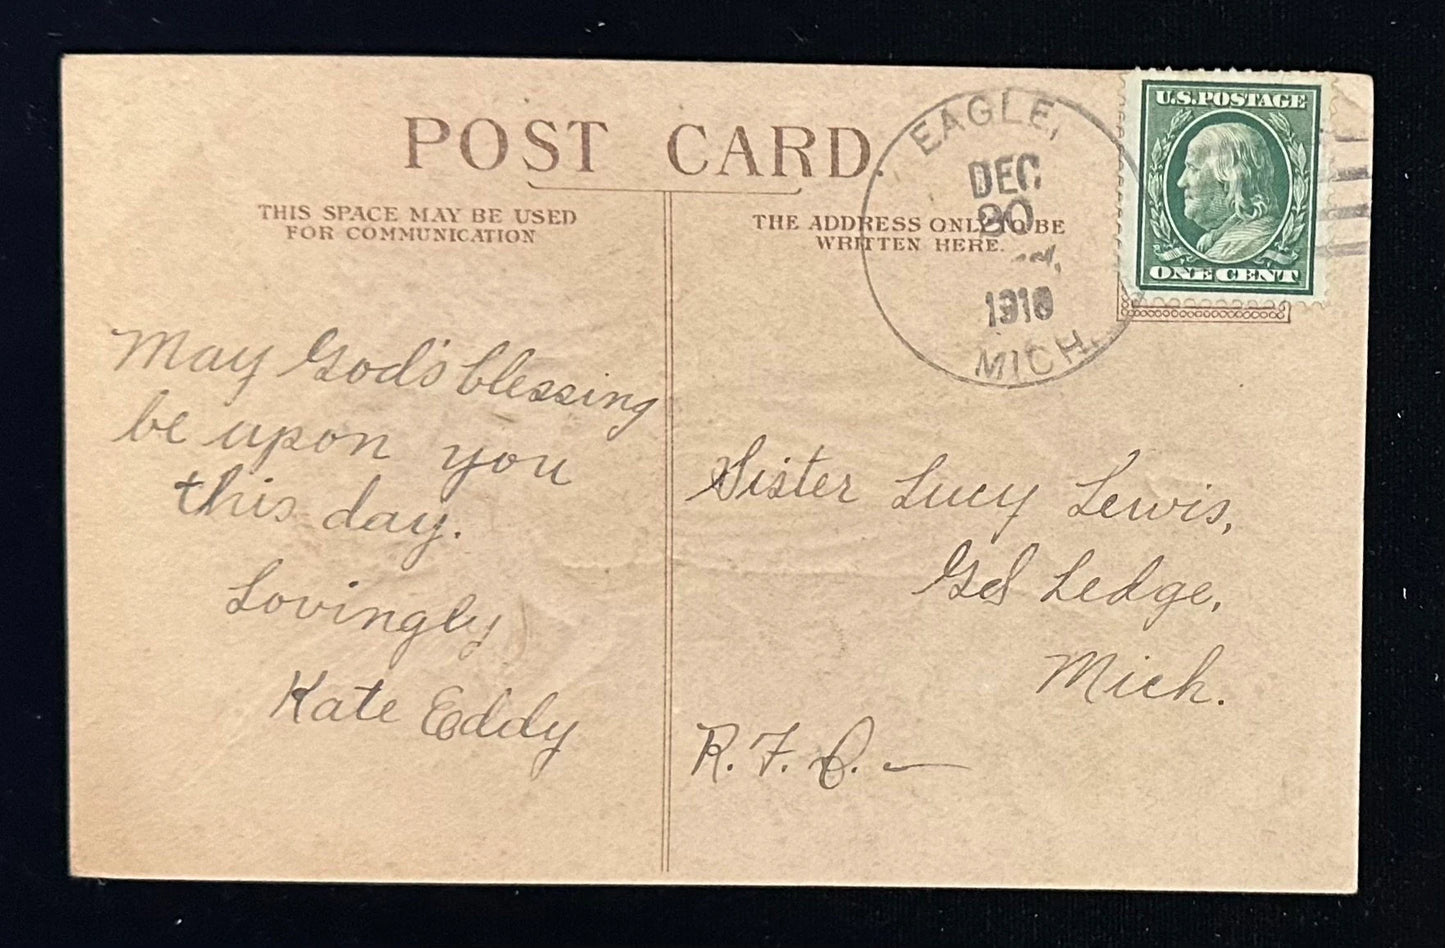 POST CARD.
THIS SPACE MAY BE USED
FOR COMMUNICATION
THE ADDRESS ONLY TO BE
WRITTEN HERE.
EAGLE,
DEC
1910
MICH.
U.S. POSTAGE
ONE CENT
May God's blessing
be upon you
this day.
Lovingly
Kate Eddy
Sister Lucy Lewis,
Ledge,
Mich.
R. F. D. —